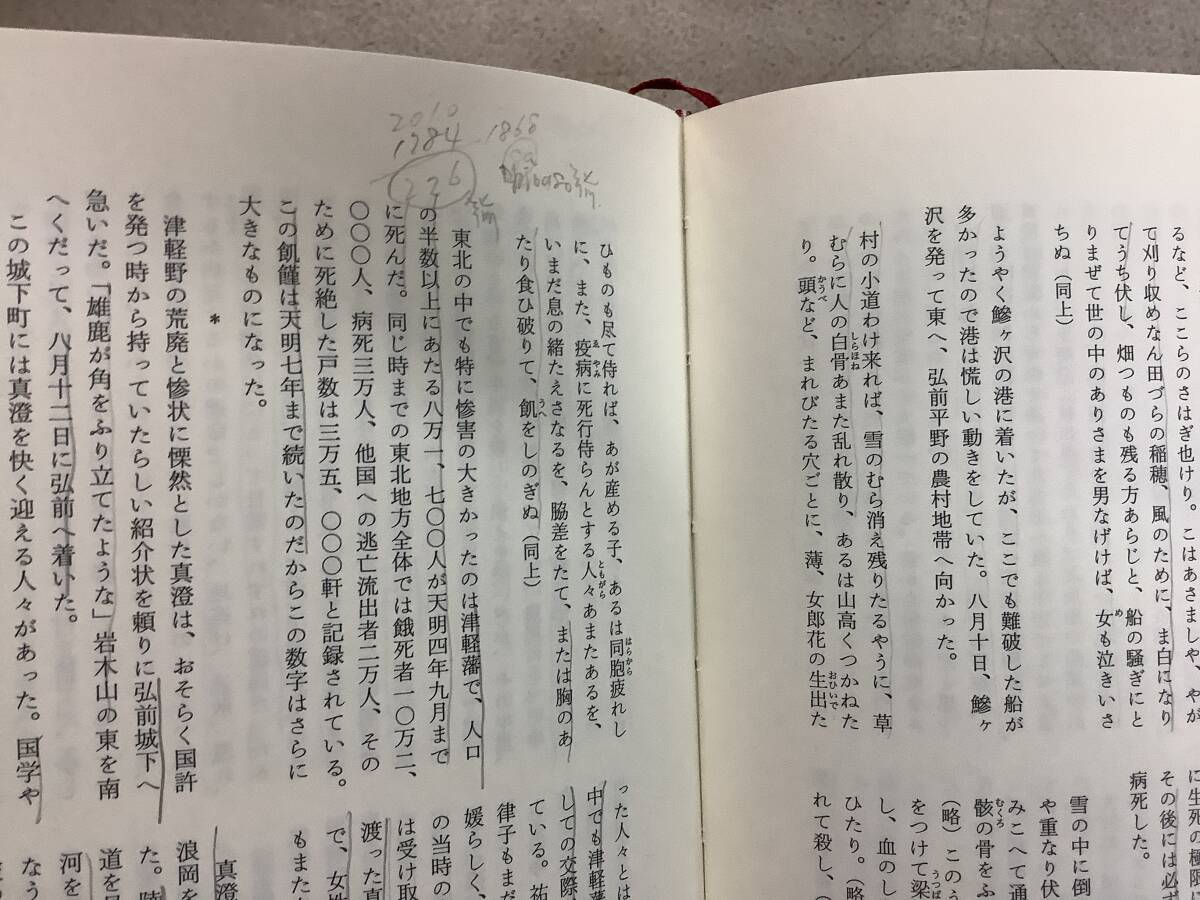 るなど、ここらのさはぎ也けり。こはあさましや、やが
て刈り収めなん田づらの稲穂、風のために、ま白になり
てうち伏し、畑つものも残る方あらじと、船の騒ぎにと
りまぜて世の中のありさまを男なげけば、女も泣きいさ
ちぬ（同上）
ようやく鰺ヶ沢の港に着いたが、ここでも難破した船が
多かったので港は慌しい動きをしていた。八月十日、鰺ヶ
沢を発って東へ、弘前平野の農村地帯へ向かった。
村の小道わけ来れば、雪のむら消え残りたるやうに、草
むらに人の白骨あまた乱れ散り、あるは山高くつかねた
り。頭など、まれびたる穴ごとに、薄、女郎花の生出た
に生死の極限に
その後には必ず
病死した。
雪の中に倒
や重なり伏
みこへて通
骸の骨をふ
（略）このう
をつけて梁
し、血のし
ひたり。（略
れて殺し、（
2010
1984
226
1868
ひものも尽て侍れば、あが産める子、あるは同胞疲れし
に、また、疫病に死行侍らんとする人々あまたあるを、
いまだ息の緒たえさなるを、脇差をたて、または胸のあ
たり食ひ破りて、飢をしのぎぬ（同上）
東北の中でも特に惨害の大きかったのは津軽藩で、人口
の半数以上にあたる八万一、七〇〇人が天明四年九月まで
に死んだ。同じ時までの東北地方全体では餓死者一〇万二、
〇〇〇人、病死三万人、他国への逃亡流出者二万人、その
ために死絶した戸数は三万五、〇〇〇軒と記録されている。
この飢饉は天明七年まで続いたのだからこの数字はさらに
大きなものになった。
＊
津軽野の荒廃と惨状に慄然とした真澄は、おそらく国許
を発つ時から持っていたらしい紹介状を頼りに弘前城下へ
急いだ。「雄鹿が角をふり立てたような」岩木山の東を南
へくだって、八月十二日に弘前へ着いた。
この城下町には真澄を快く迎える人々があった。国学や
った人々とは
中でも津軽藩
しての交際
ている。祐
律子もまだ
媛らしく、
の当時の
は受け取
渡った真
で、女性
もまた
真澄
浪岡を
た。陸
道を
河を
なう